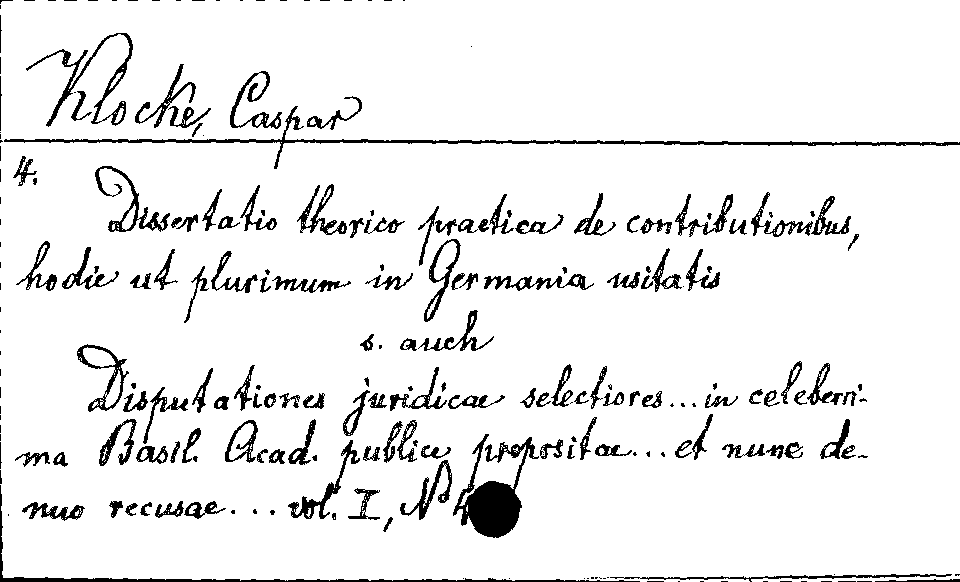 Klocke, Caspar
4.
Dissertatio theorico practica de contributionibus,
hodie ut plurimum in Germania usitatis
s. auch
Disputationes juridicae selectiores...in celeberri-
ma Basil. Acad. publice propositae...et nunc de-
nuo recusae... vol. I, No